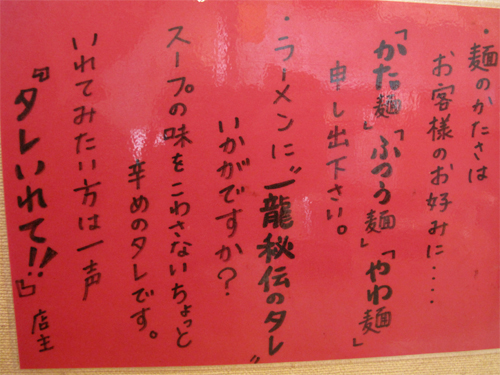 ・麺のかたさは
お客様のお好みに‥‥
「かた麺」「ふつう麺」「やわ麺」
申し出下さい。
・ラーメンに〝一龍秘伝のタレ〟
いかがですか？
スープの味をこわさないちょっと
辛めのタレです。
いれてみたい方は一声
『タレいれて!!』
店主